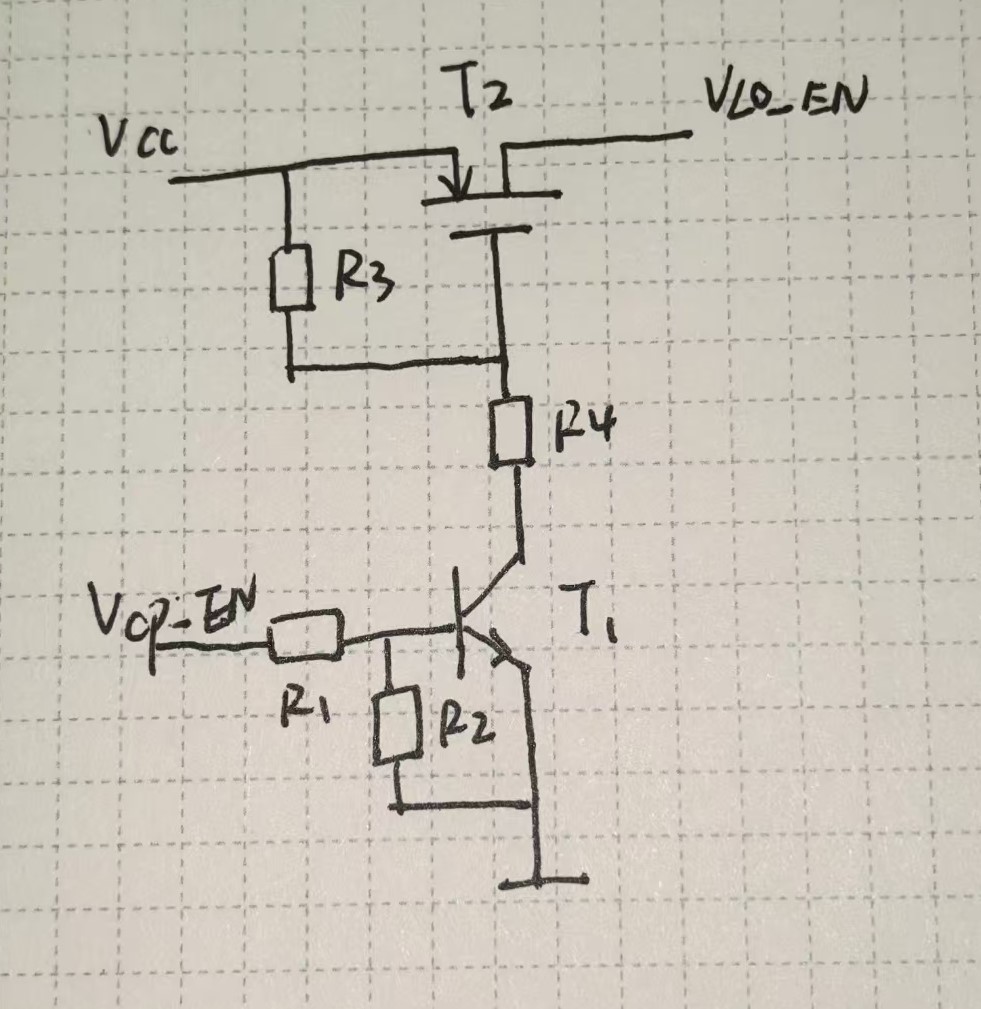 T2
VLO_EN
VCC
R3
R4
Vcp-EN
T1
R1
R2